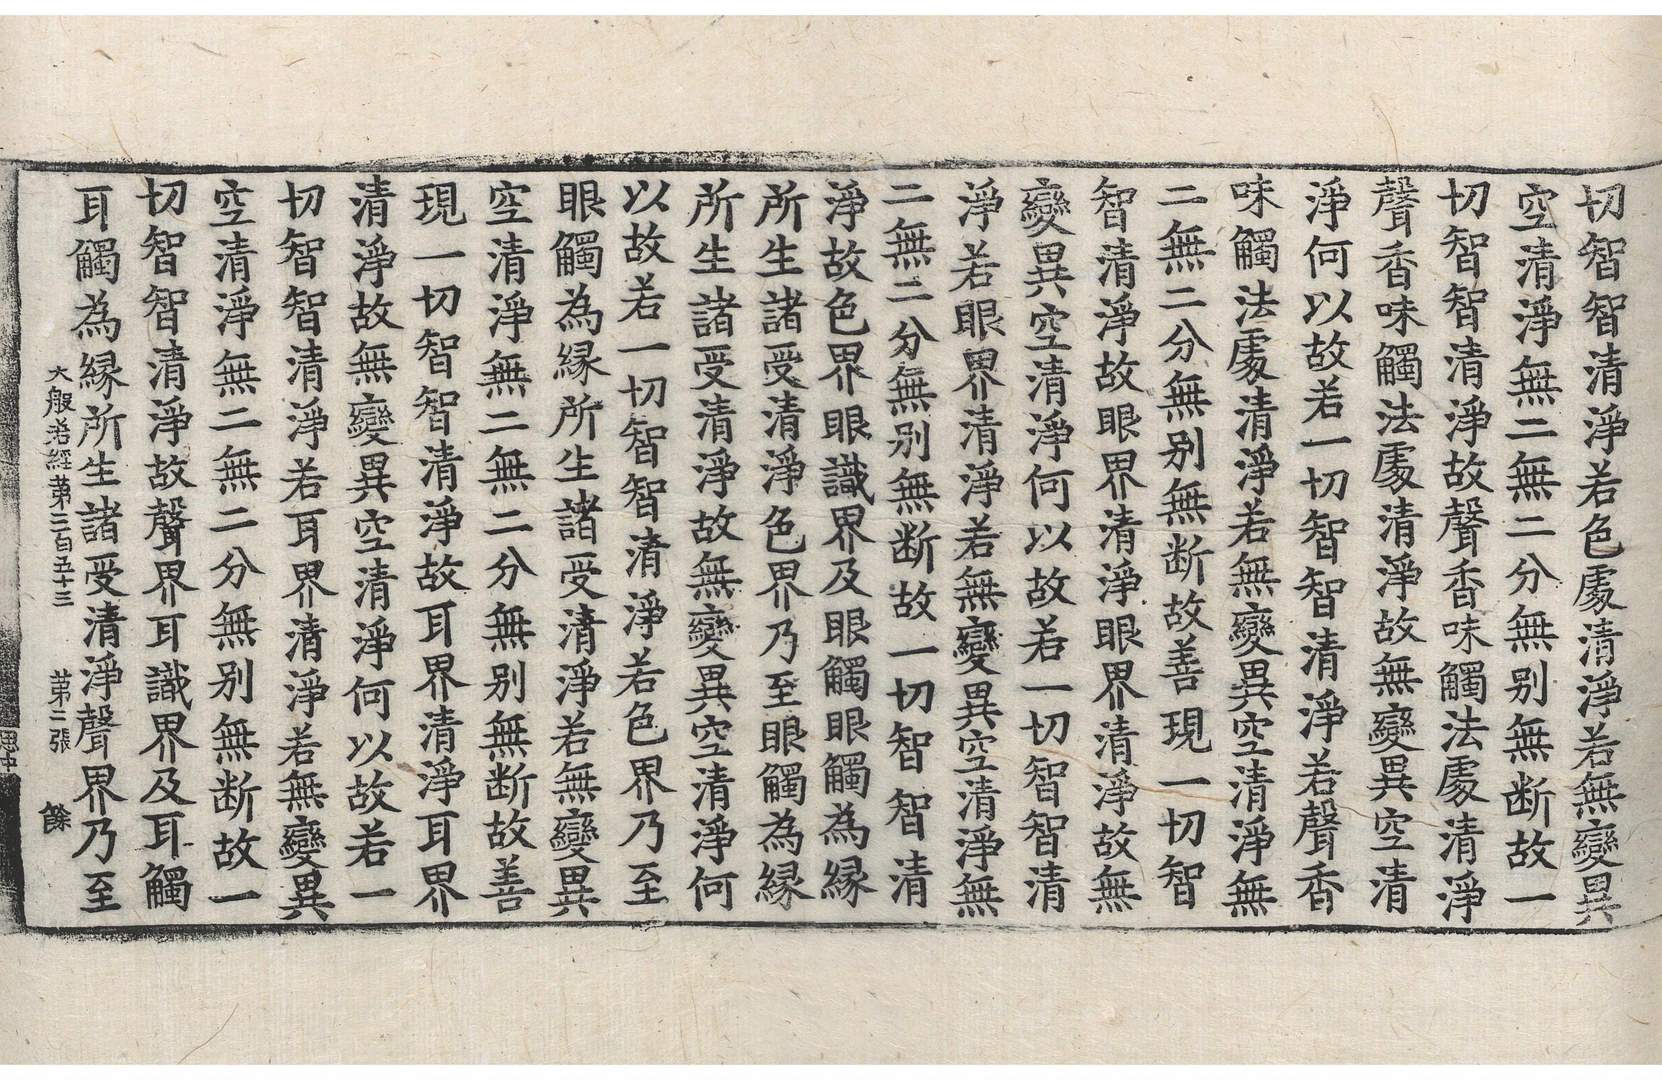 切智智清淨若色處清淨若無變異
空清淨無二無二分無别無断故一
切智智清淨故聲香味觸法處清淨
聲香味觸法處清淨故無變異空清
淨何以故若一切智智清淨若聲香
味觸法處清淨若無變異空清淨無
二無二分無别無断故善現一切智
智清淨故眼界清淨眼界清淨故無
變異空清淨何以故若一切智智清
淨若眼界清淨若無變異空清淨無
二無二分無别無断故一切智智清
淨故色界眼識界及眼觸眼觸為縁
所生諸受清淨色界乃至眼觸為縁
所生諸受清淨故無變異空清淨何
以故若一切智智清淨若色界乃至
眼觸為縁所生諸受清淨若無變異
空清淨無二無二分無别無断故善
現一切智智清淨故耳界清淨耳界
清淨故無變異空清淨何以故若一
切智智清淨若耳界清淨若無變異
空清淨無二無二分無别無断故一
切智智清淨故聲界耳識界及耳觸
耳觸為縁所生諸受清淨聲界乃至
大般若經第二百五十三 第二張 餘